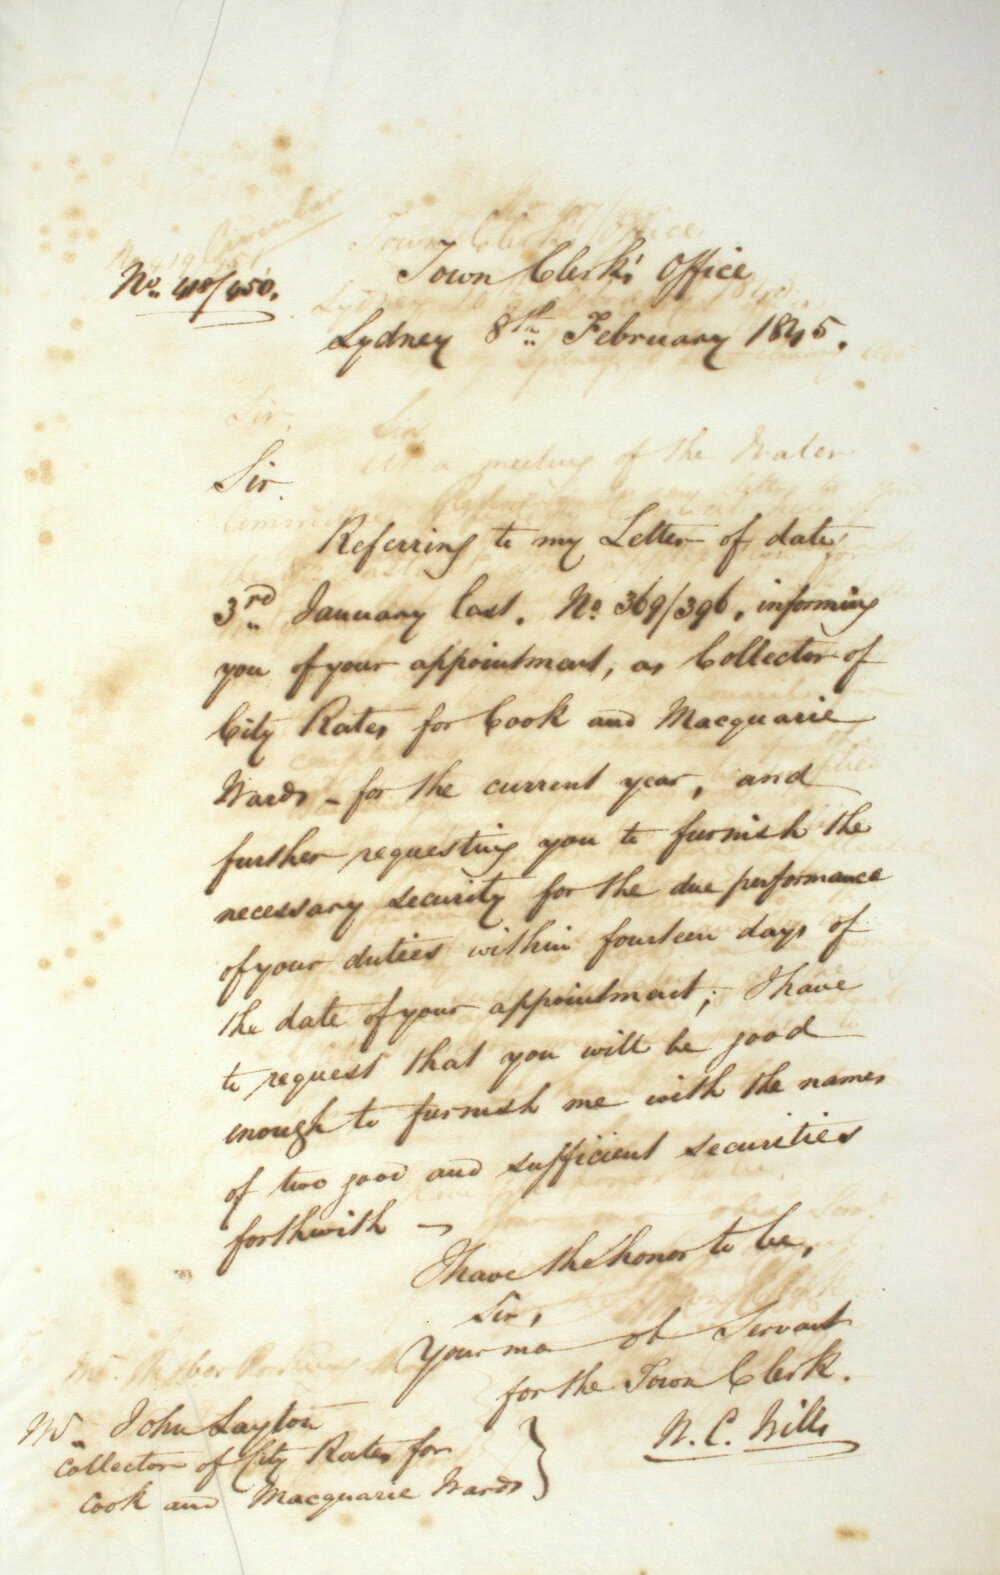 Town Clerk's Office
No. 418/450.
Sydney 8th February 1845.
Sir.
Referring to my Letter of date
3rd January last. No. 369/396, informing
you of your appointment, as Collector of
City Rates for Cook and Macquarie
Wards - for the current year, and
further requesting you to furnish the
necessary security for the due performance
of your duties within fourteen days of
the date of your appointment; I have
to request that you will be good
enough to furnish me with the names
of two good and sufficient securities
forthwith —
I have the honor to be,
Sir,
Your mo ob Servant
for the Town Clerk.
W. C. Wills
Mr. John Layton
Collector of City Rates for
Cook and Macquarie Wards